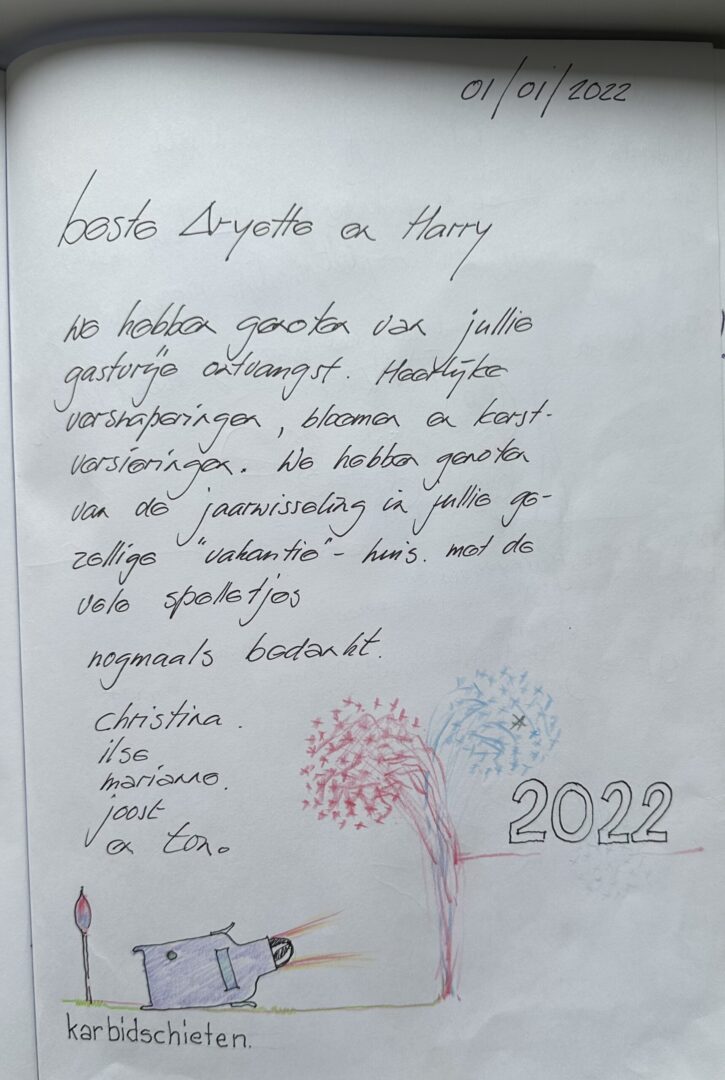 01/01/2022
beste Aryette en Harry
we hebben genoten van jullie
gastvrije ontvangst. Heerlijke
versnaperingen, bloemen en kerst-
versieringen. We hebben genoten
van de jaarwisseling in jullie ge-
zellige "vakantie"- huis. met de
vele spelletjes
nogmaals bedankt.
christina.
ilse
marianne.
joost
en ton.
2022
karbidschieten.